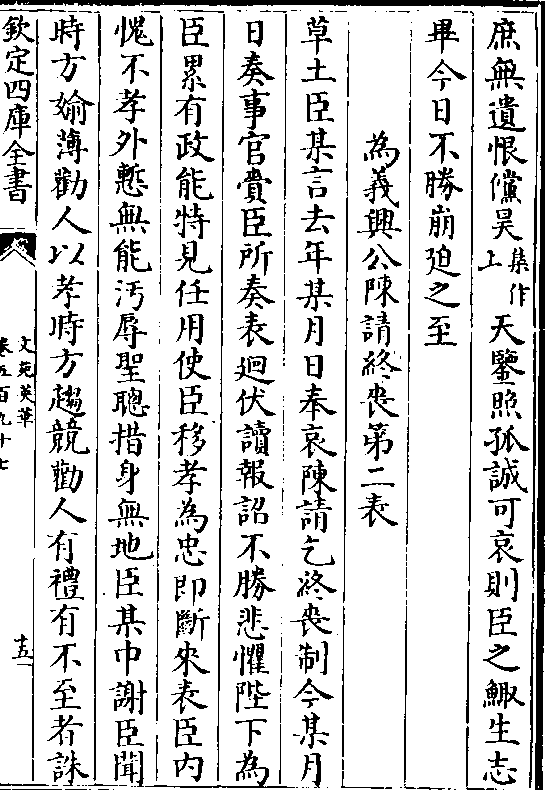 庶無遺恨儻昊集作上天鑒照孤誠可哀則臣之鯫生志
畢今日不勝崩廹之至
為義興公陳請終喪第二表
草土臣某言去年某月日奉哀陳請乞終喪制今某月
日奏事官賁臣所奏表廻伏讀報詔不勝悲懼陛下為
臣累有政能特見任用使臣移孝為忠即斷來表臣内
愧不孝外慙無能汚辱聖聰措身無地臣某中謝臣聞
時方婾薄勸人以孝時方趨競勸人有禮有不至者誅
欽定四庫全書
文苑英華
卷五百九十七
十五